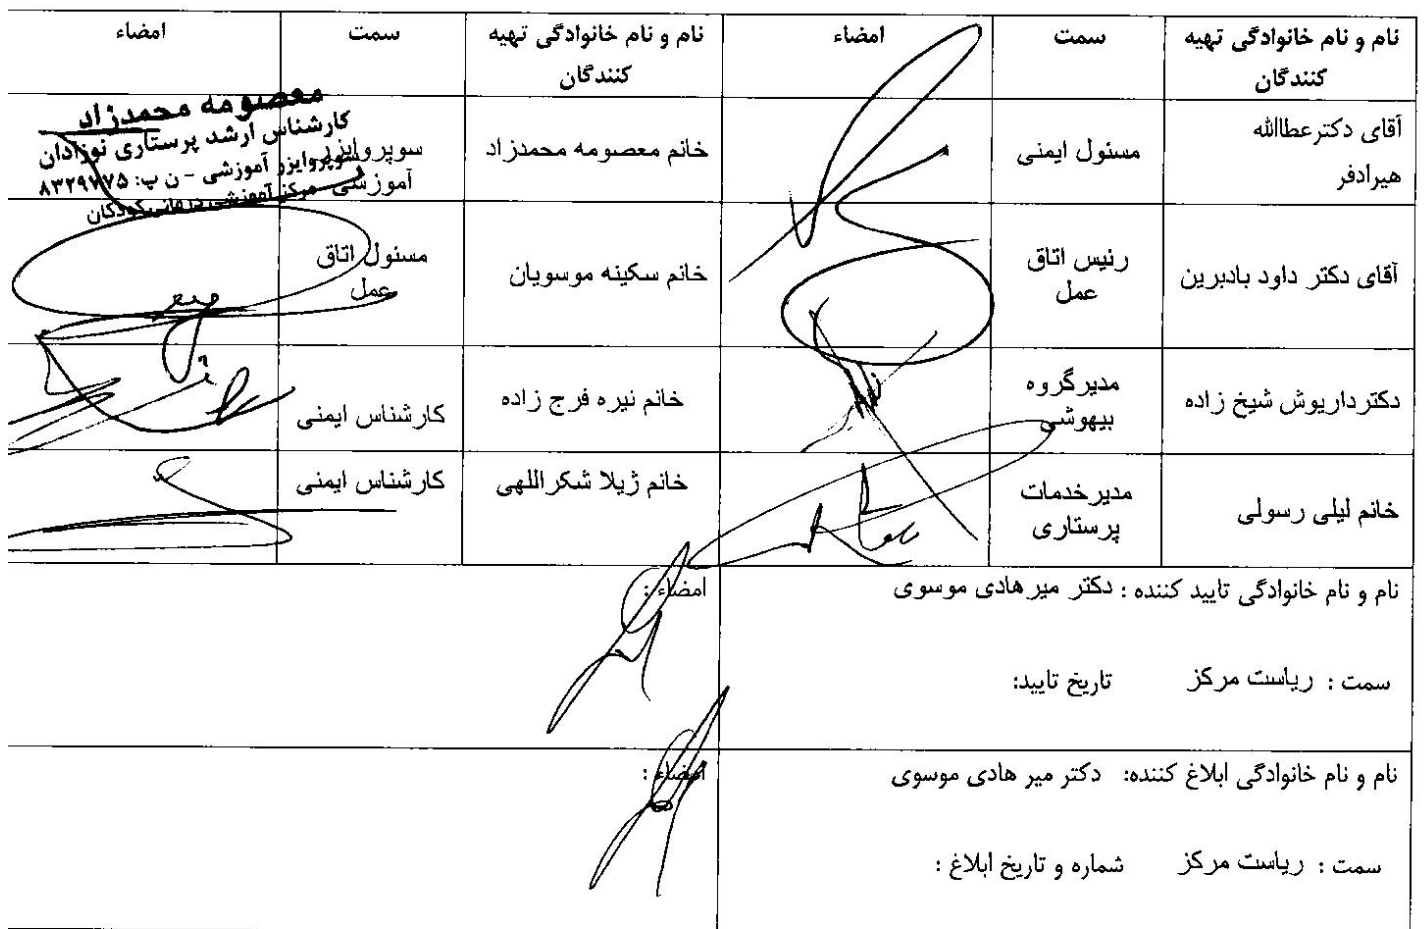 نام و نام خانوادگی تهیه کنندگان سمت امضاء نام و نام خانوادگی تهیه کنندگان سمت امضاء
آقای دکترعطاالله هیرادفر
مسئول ایمنی
خانم معصومه محمدزاد
سوپروایزر آموزشی
معصومه محمدزاد
کارشناس ارشد پرستاری نوزادان
سوپروایزر آموزشی - ن پ: ۸۳۲۹۷۷۵
مرکز آموزشی درمانی کودکان
آقای دکتر داود بادبرین
رئیس اتاق عمل
خانم سکینه موسویان
مسئول اتاق عمل
دکترداریوش شیخ زاده
مدیرگروه بیهوشی
خانم نیره فرج زاده
کارشناس ایمنی
خانم لیلی رسولی
مدیرخدمات پرستاری
خانم ژیلا شکراللهی
کارشناس ایمنی
نام و نام خانوادگی تایید کننده : دکتر میرهادی موسوی
امضاء :
سمت : ریاست مرکز تاریخ تایید:
نام و نام خانوادگی ابلاغ کننده: دکتر میر هادی موسوی
امضاء :
سمت : ریاست مرکز شماره و تاریخ ابلاغ :